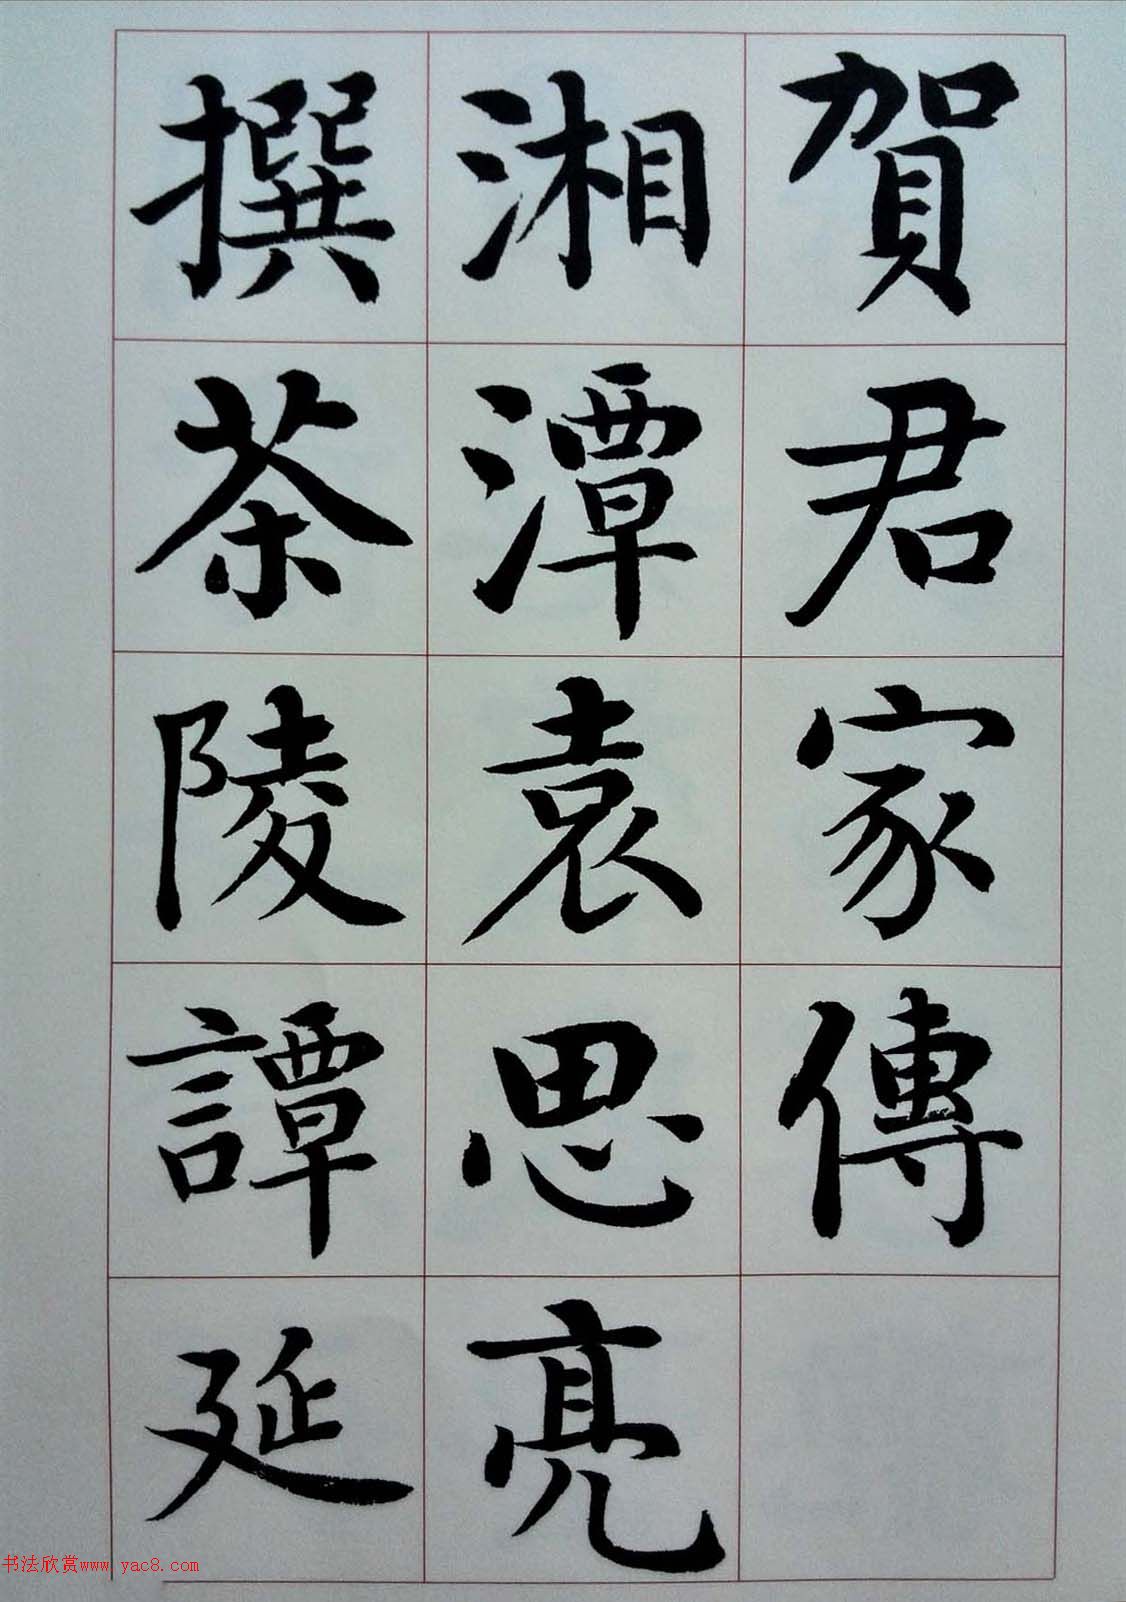 賀君家傳
湘潭袁思亮
撰茶陵譚延
书法欣赏www.yac8.com